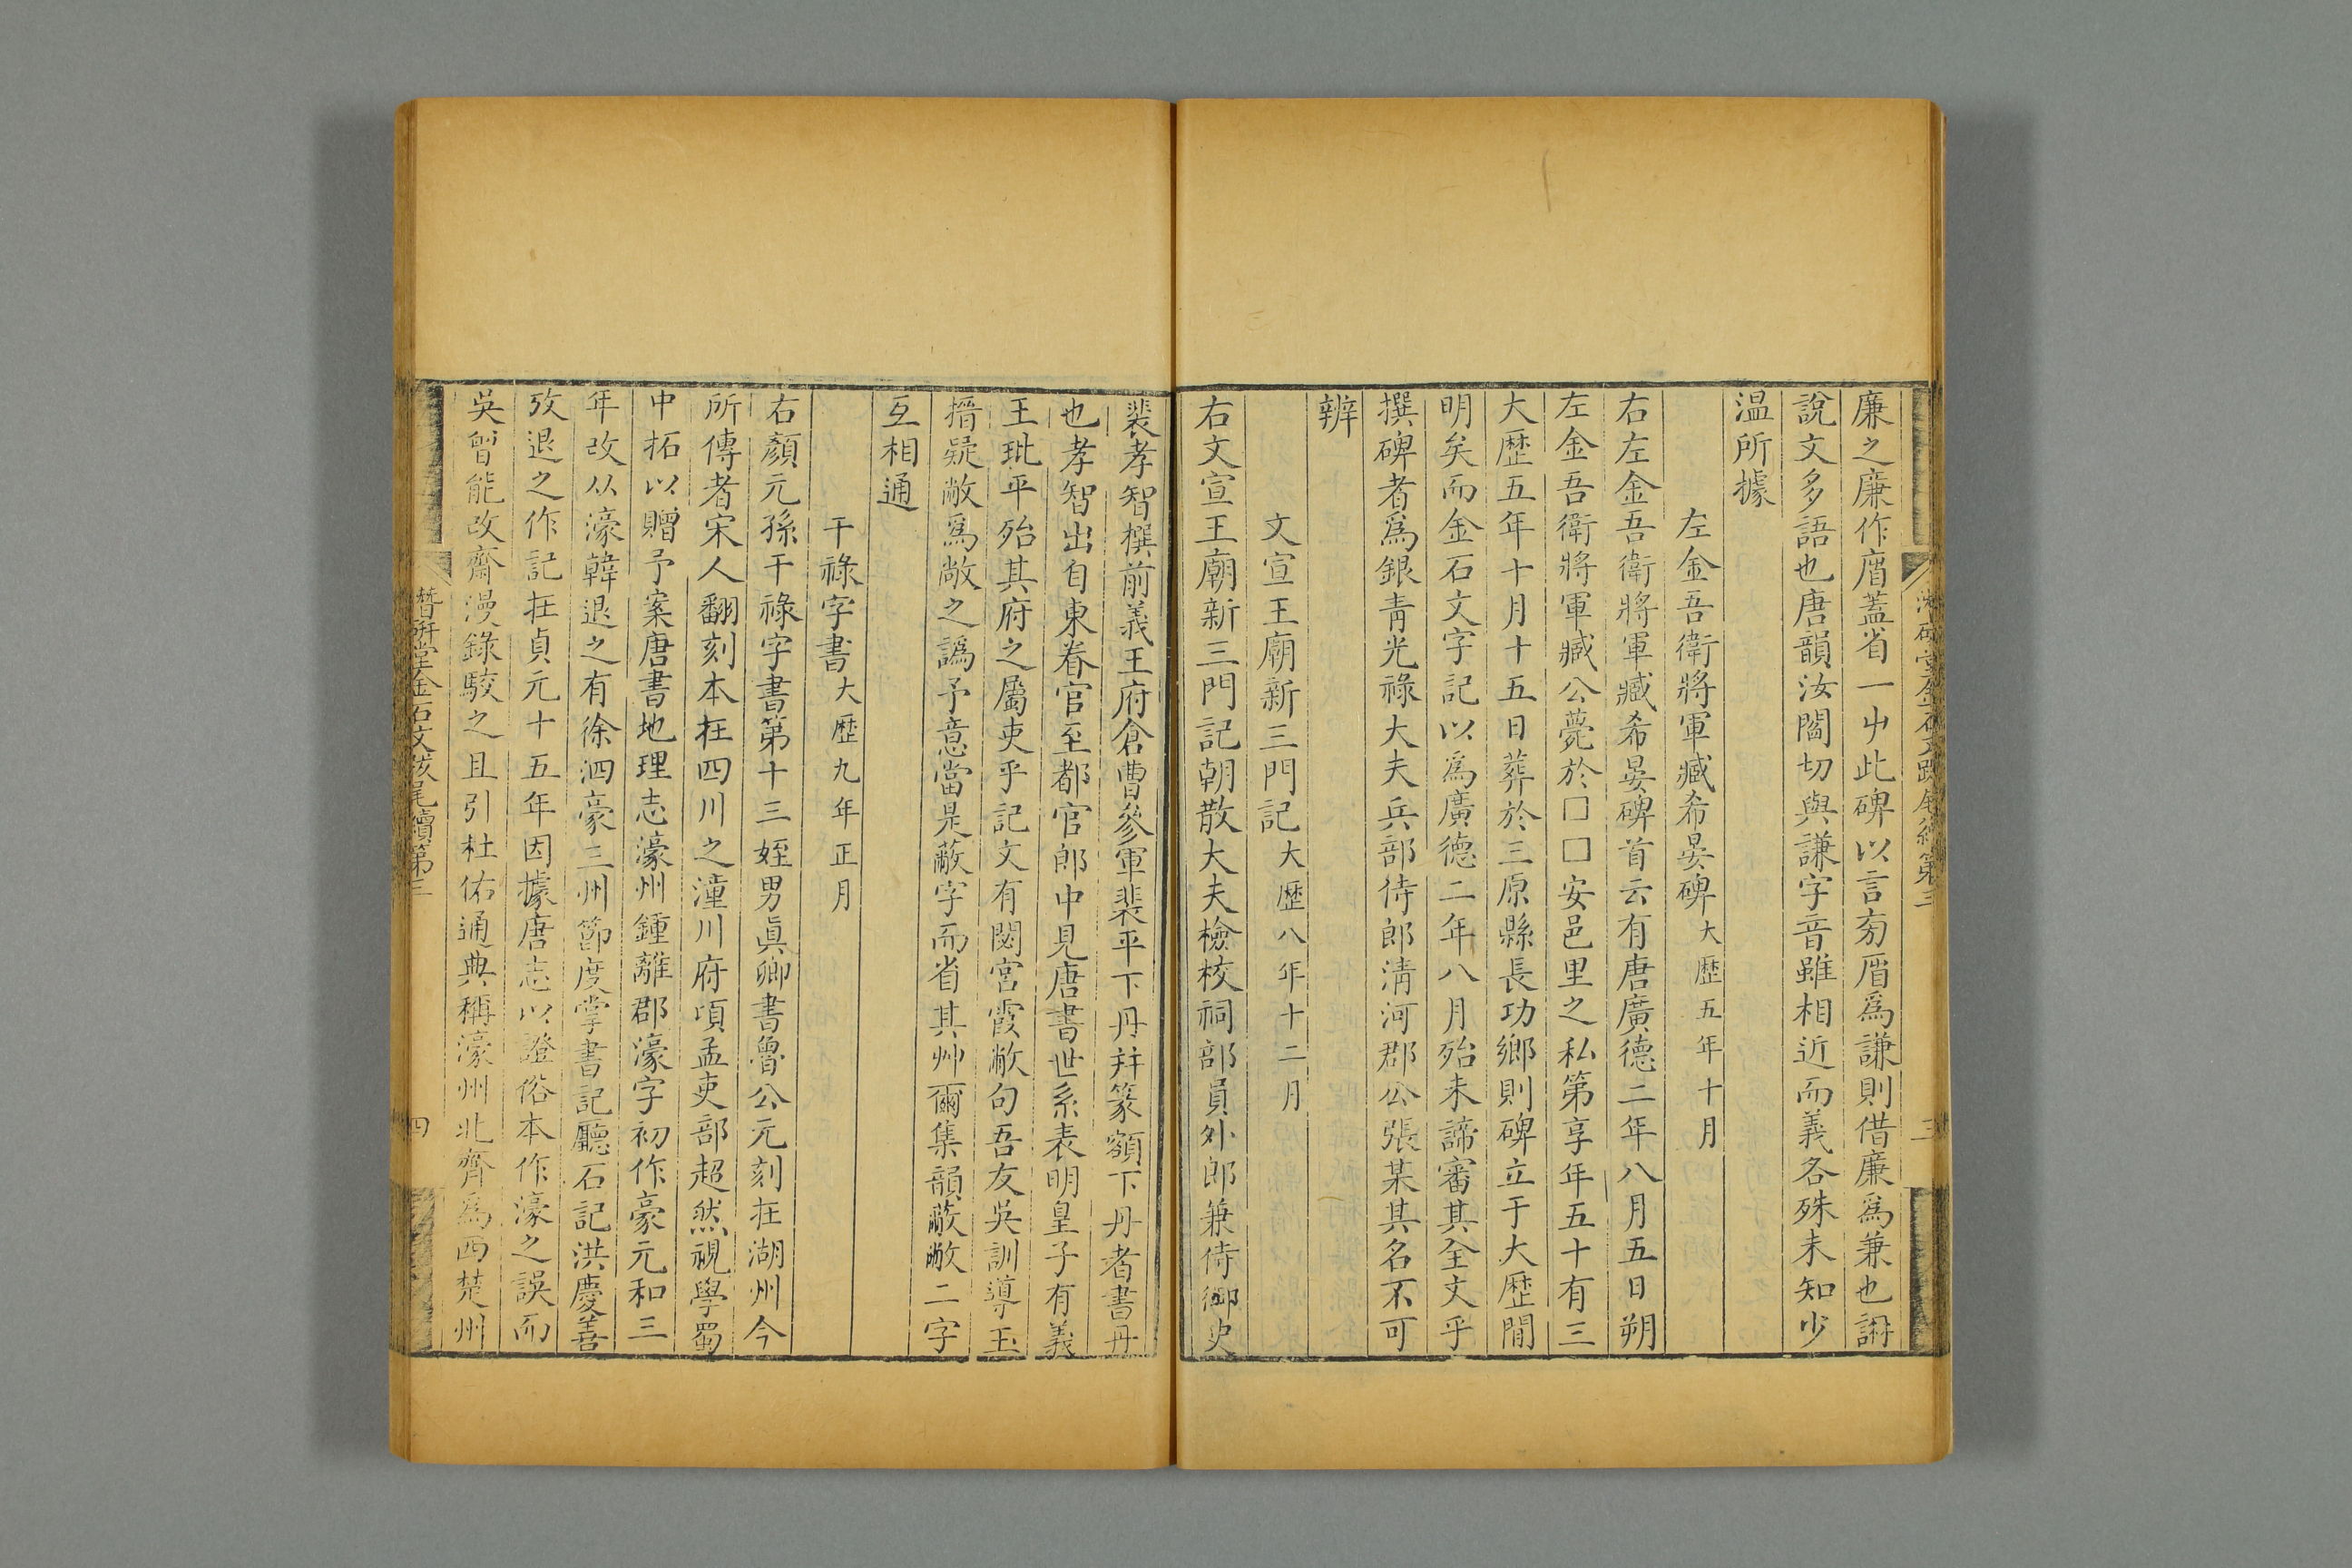 廉之廉作厝蓋省一屮此碑以言旁厝爲謙則借廉爲兼也訓
說文多語也唐韻汝閻切與謙字音雖相近而義各殊未知少
温所據
左金吾衛將軍臧希晏碑大歷五年十月
右左金吾衛將軍臧希晏碑首云有唐廣德二年八月五日朔
左金吾衛將軍臧公薨於□□安邑里之私第享年五十有三
大歷五年十月十五日葬於三原縣長功鄉則碑立于大歷閒
明矣而金石文字記以爲廣德二年八月殆未諦審其全文乎
撰碑者爲銀青光祿大夫兵部侍郎淸河郡公張某其名不可
辨
文宣王廟新三門記大歷八年十二月
右文宣王廟新三門記朝散大夫檢校祠部員外郎兼侍御史
裴孝智撰前義王府倉曹參軍裴平下丹幷篆額下丹者書丹
也孝智出自東眷官至都官郎中見唐書世系表明皇子有義
王玭平殆其府之屬吏乎記文有閟宮霞敝句吾友吳訓導玉
搢疑敝爲敞之譌予意當是蔽字而省其艸爾集韻蔽敝二字
互相通
干祿字書大歷九年正月
右顏元孫干祿字書第十三姪男眞卿書魯公元刻在湖州今
所傳者宋人翻刻本在四川之潼川府頃孟吏部超然視學蜀
中拓以贈予案唐書地理志濠州鍾離郡濠字初作豪元和三
年改从濠韓退之有徐泗豪三州節度掌書記廳石記洪慶善
攷退之作記在貞元十五年因據唐志以證俗本作濠之誤而
吳曾能改齋漫錄駮之且引杜佑通典稱濠州北齊爲西楚州
潛硏堂金石文跋尾續第三
四